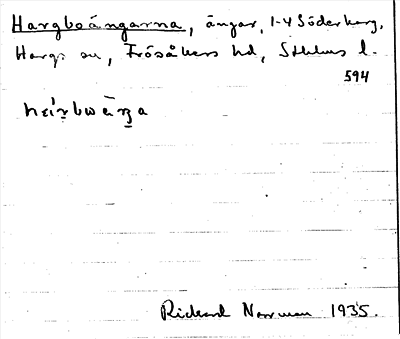 Hargboängarna, ängar, 1-4 Söderharg,
Hargs sn, Frösåkers hd, Sthlms l.
594
Rickard Norrman 1935.